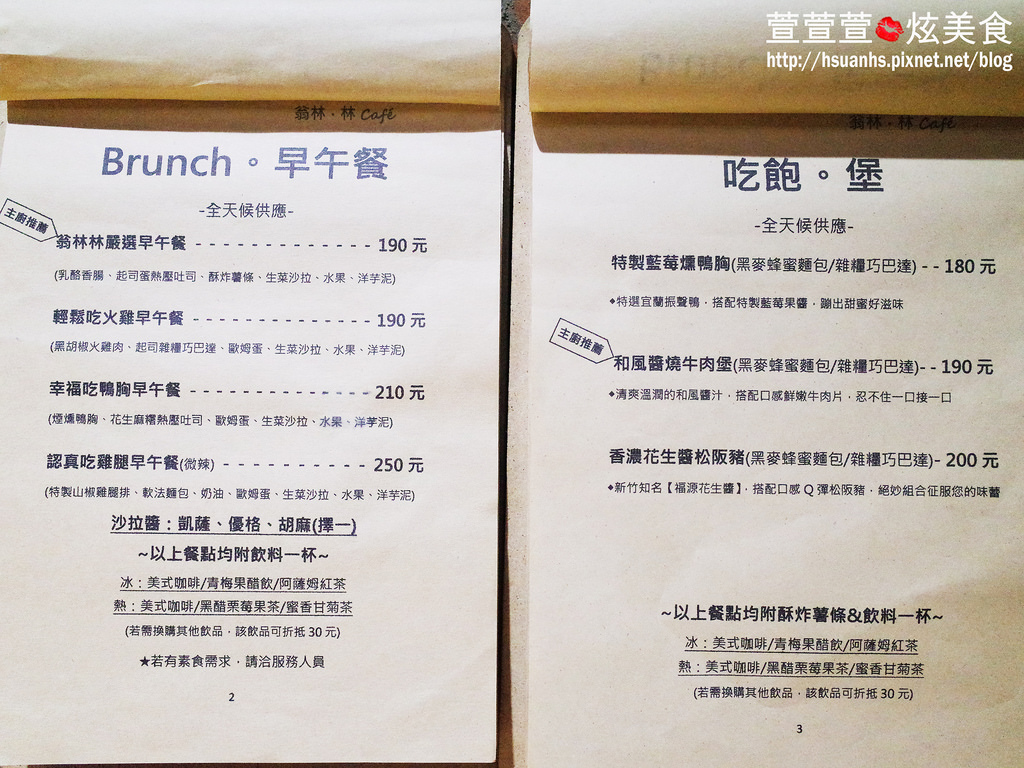 萱萱萱💋炫美食
http://hsuanhs.pixnet.net/blog
翁林‧林 Café
Brunch。早午餐
-全天候供應-
主廚推薦
翁林林嚴選早午餐 - - - - - - - - - - - - - - 190 元
(乳酪香腸、起司蛋熱壓吐司、酥炸薯條、生菜沙拉、水果、洋芋泥)
輕鬆吃火雞早午餐 - - - - - - - - - - - - - - 190 元
(黑胡椒火雞肉、起司雜糧巧巴達、歐姆蛋、生菜沙拉、水果、洋芋泥)
幸福吃鴨胸早午餐 - - - - - - - - - - - - - - 210 元
(煙燻鴨胸、花生麻糬熱壓吐司、歐姆蛋、生菜沙拉、水果、洋芋泥)
認真吃雞腿早午餐(微辣) - - - - - - - - - - - 250 元
(特製山椒雞腿排、軟法麵包、奶油、歐姆蛋、生菜沙拉、水果、洋芋泥)
沙拉醬：凱薩、優格、胡麻(擇一)
~以上餐點均附飲料一杯~
冰：美式咖啡/青梅果醋飲/阿薩姆紅茶
熱：美式咖啡/黑醋栗莓果茶/蜜香甘菊茶
(若需換購其他飲品，該飲品可折抵 30 元)
★若有素食需求，請洽服務人員
2
翁林‧林 Café
吃飽。堡
-全天候供應-
特製藍莓燻鴨胸(黑麥蜂蜜麵包/雜糧巧巴達) - - 180 元
◆特選宜蘭振聲鴨，搭配特製藍莓果醬，蹦出甜蜜好滋味
主廚推薦
和風醬燒牛肉堡(黑麥蜂蜜麵包/雜糧巧巴達)- - 190 元
◆清爽溫潤的和風醬汁，搭配口感鮮嫩牛肉片，忍不住一口接一口
香濃花生醬松阪豬(黑麥蜂蜜麵包/雜糧巧巴達)- 200 元
◆新竹知名【福源花生醬】，搭配口感 Q 彈松阪豬，絕妙組合征服您的味蕾
~以上餐點均附酥炸薯條&飲料一杯~
冰：美式咖啡/青梅果醋飲/阿薩姆紅茶
熱：美式咖啡/黑醋栗莓果茶/蜜香甘菊茶
(若需換購其他飲品，該飲品可折抵 30 元)
3